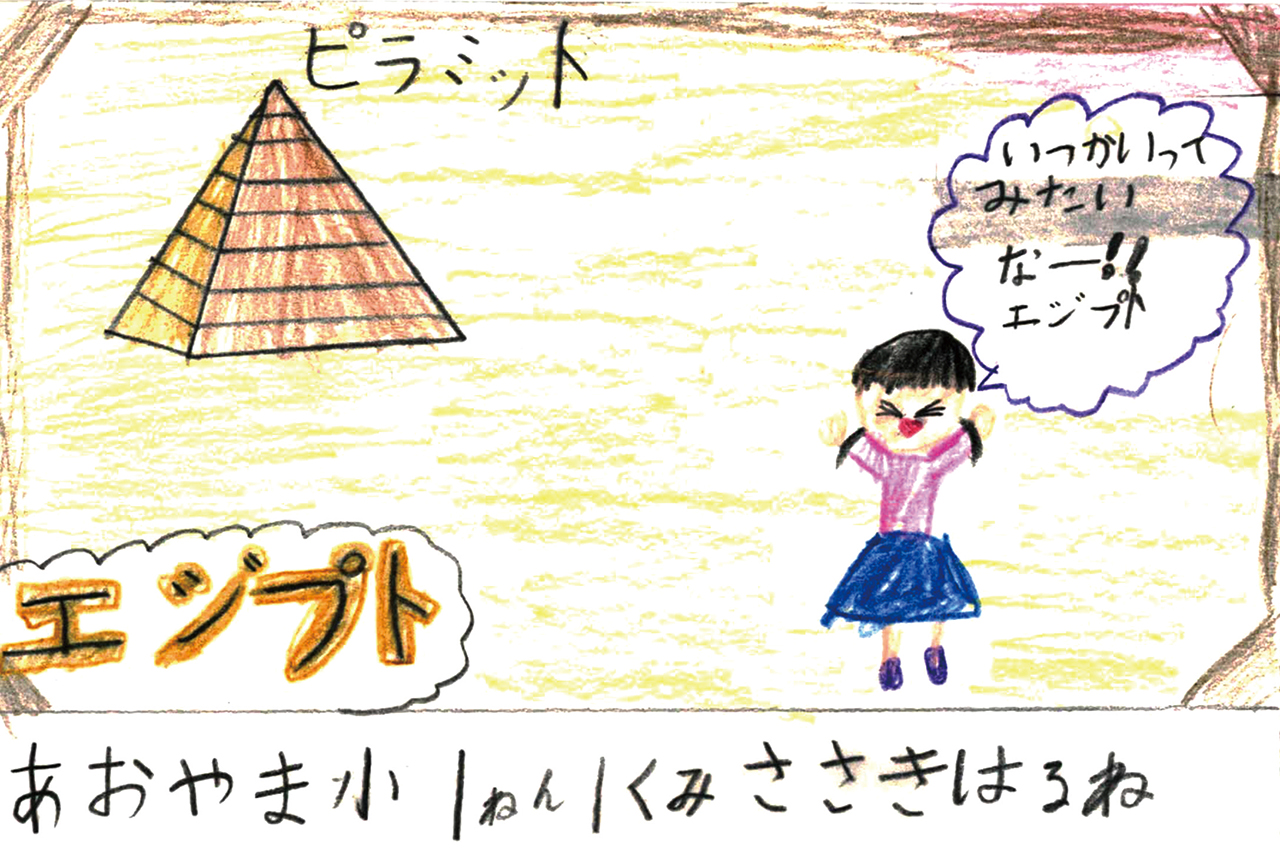 ピラミット
いつかいって
みたい
なー!!
エジプト
エジプト
あおやま小1ねん1くみささきはるね